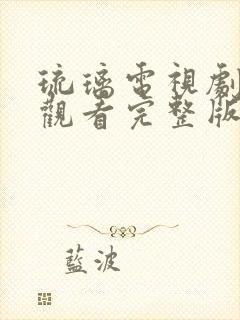 琉璃電視劇
觀看完整版
藍波